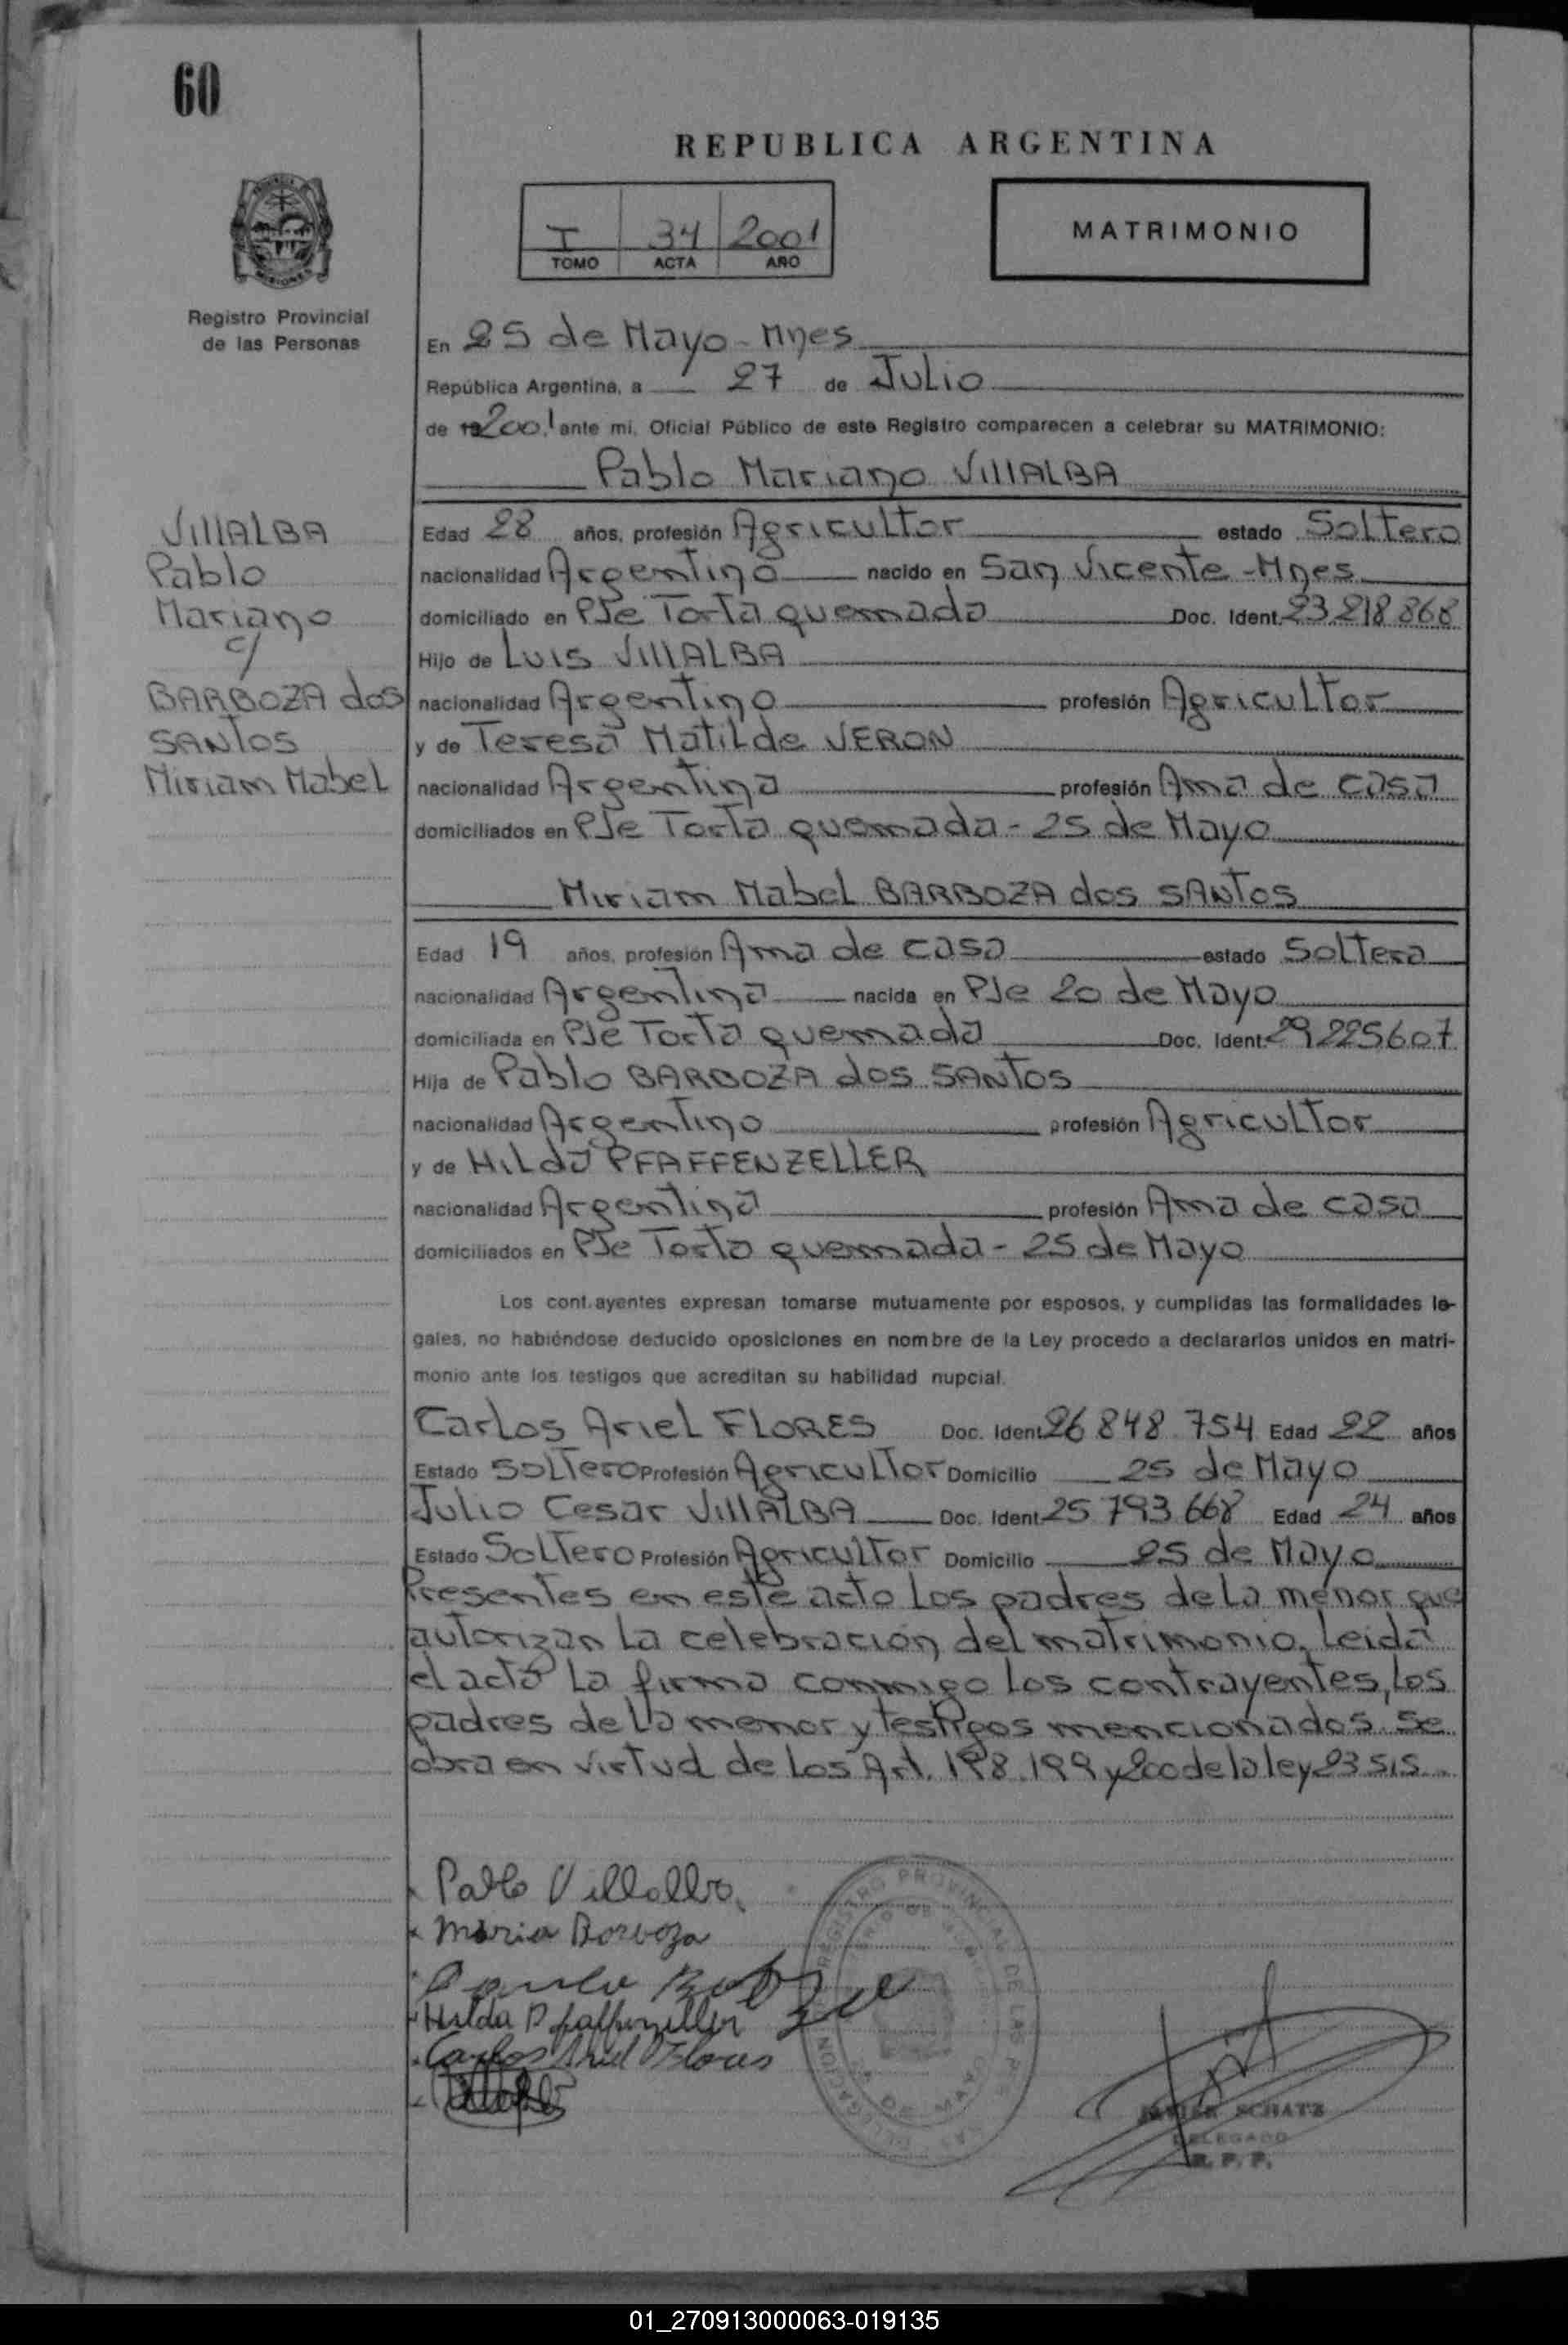 60
REPUBLICA ARGENTINA
I 34 2001
TOMO ACTA AÑO
MATRIMONIO
Registro Provincial
de las Personas
En 25 de Mayo - Mnes
República Argentina, a 27 de Julio
de 19 2001 ante mí, Oficial Público de este Registro comparecen a celebrar su MATRIMONIO:
Pablo Mariano VIllALBA
VIllALBA
Pablo
Mariano
c/
BARBOZA dos
SANTOS
Miriam Mabel
Edad 28 años, profesión Agricultor estado Soltero
nacionalidad Argentino nacido en San Vicente - Mnes
domiciliado en PJe Torta quemada Doc. Ident. 23.218.868
Hijo de Luis VIllALBA
nacionalidad Argentino profesión Agricultor
y de Teresa Matilde VERON
nacionalidad Argentina profesión Ama de casa
domiciliados en PJe Torta quemada - 25 de Mayo
Miriam Mabel BARBOZA dos SANTOS
Edad 19 años, profesión Ama de casa estado Soltera
nacionalidad Argentina nacida en PJe 20 de Mayo
domiciliada en PJe Torta quemada Doc. Ident. 29.225.607
Hija de Pablo BARBOZA dos SANTOS
nacionalidad Argentino profesión Agricultor
y de Hilda PFAFFENZELLER
nacionalidad Argentina profesión Ama de casa
domiciliados en PJe Torta quemada - 25 de Mayo
Los cont.ayentes expresan tomarse mutuamente por esposos, y cumplidas las formalidades le-
gales, no habiéndose deducido oposiciones en nombre de la Ley procedo a declararlos unidos en matri-
monio ante los testigos que acreditan su habilidad nupcial.
Carlos Ariel FLORES Doc. Ident. 26.848.754 Edad 22 años
Estado Soltero Profesión Agricultor Domicilio 25 de Mayo
Julio Cesar VIllALBA Doc. Ident. 25.793.668 Edad 24 años
Estado Soltero Profesión Agricultor Domicilio 25 de Mayo
Presentes en este acto los padres de la menor que
autorizan la celebración del matrimonio. Leida
el acta la firma conmigo los contrayentes, los
padres de la menor y testigos mencionados. Se
obra en virtud de los Art. 198.199 y 200 de la ley 23515.
Pablo Villalba
Maria Borboza
Hilda Pfaffenzeller
Carlos Ariel Flores
REGISTRO PROVINCIAL DE LAS
DELEGACION
DE MAYO
JAVIER SCHATZ
DELEGADO
R. P. P.
01_270913000063-019135